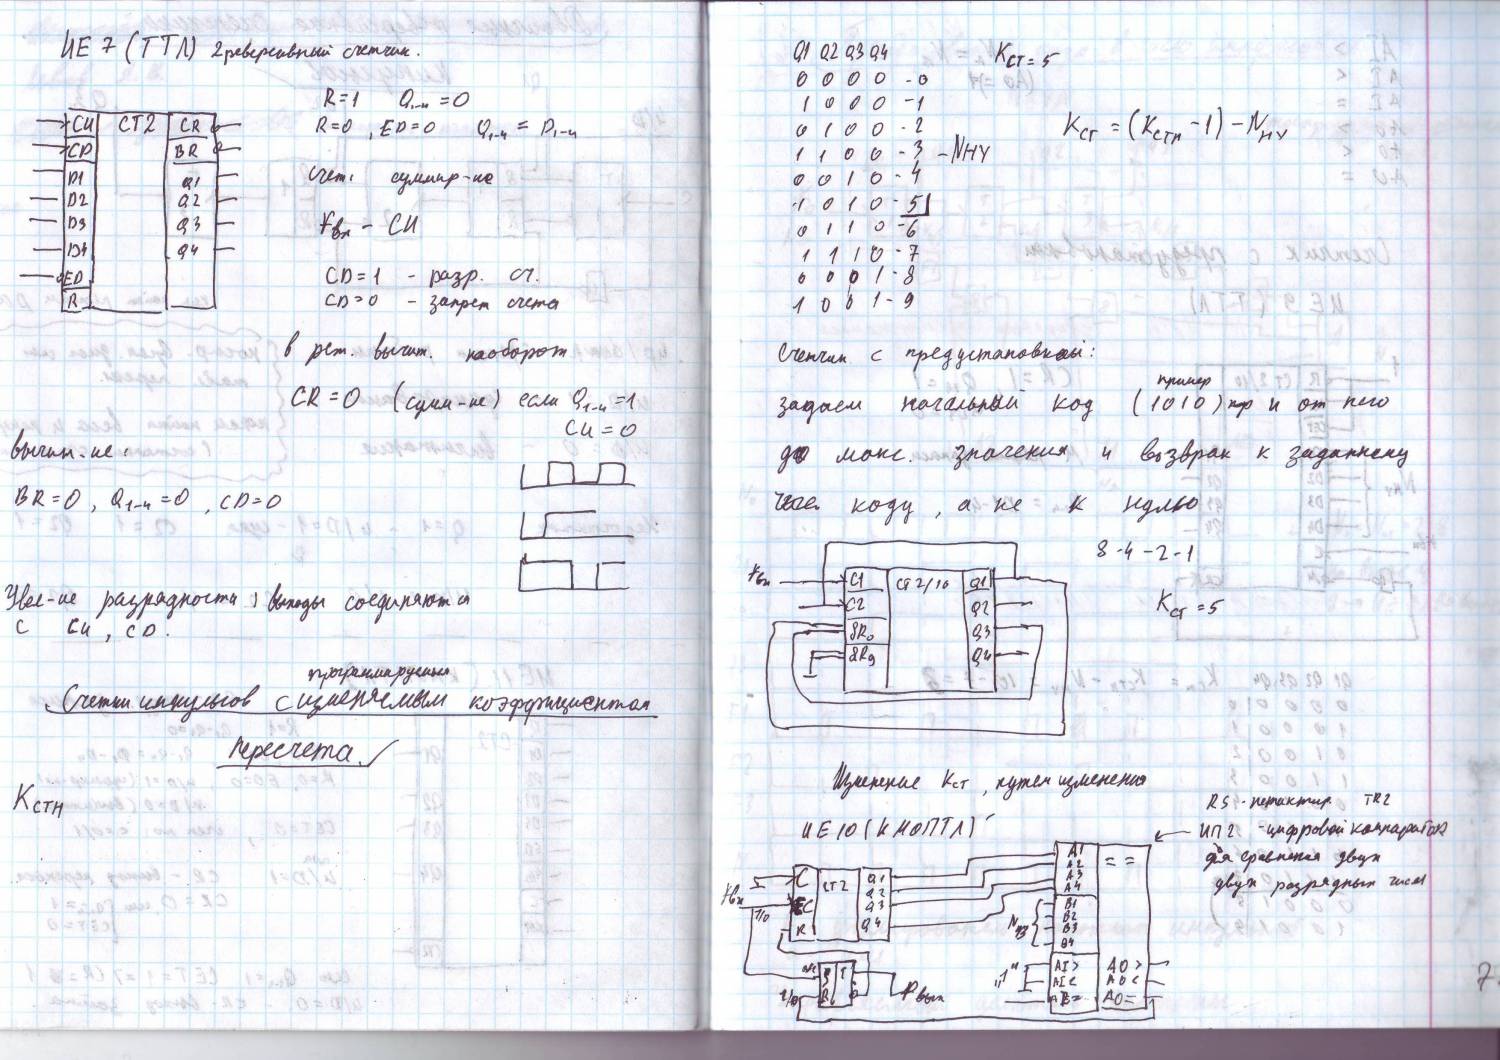 ИЕ 7 (ТТЛ) 2 реверсивный счетчик.
R=1 Q1-4 = 0
R=0, ED=0 Q1-4 = D1-4
CU CT2 CR
CD BR
D1 Q1
D2 Q2
D3 Q3
D4 Q4
ED
R
счет. суммир-ие
Fвх - CU
CD=1 - разр. сч.
CD=0 - запрет счета
в реж. вычит. наоборот
CR=0 (сумм-ие) если Q1-4=1
CU=0
вычит-ие:
BR=0, Q1-4=0, CD=0
Увел-ие разрядности, выходы соединяются
с CU, CD.
программируемые
Счетчики импульсов с изменяемым коэффициентом
пересчета.
Kстн
Q1 Q2 Q3 Q4 Kст=5
0 0 0 0 - 0
1 0 0 0 - 1
0 1 0 0 - 2
1 1 0 0 - 3 - NНУ
0 0 1 0 - 4
1 0 1 0 - 5
0 1 1 0 - 6
1 1 1 0 - 7
0 0 0 1 - 8
1 0 0 1 - 9
Kст = (Kстн - 1) - NНУ
Счетчик с предустановкой:
пример
задаем начальный код (1010) пр и от него
до макс. значения и возврат к заданному
коду, а не к нулю
8-4-2-1
Kст = 5
Fвх
C1 CT2/10 Q1
C2 Q2
&R0 Q3
&R9 Q4
Изменение Kст, путем изменения
RS-петактир TR2
ИЕ10 (КМОПТЛ)
ИП2 - цифровой компаратор
для сравнения двух
двух разрядных чисел
Fвх
1/0
C CT2 Q1
EC Q2
R Q3
Q4
A1 = =
A2
A3
A4
B1
B2
B3
B4
Nпз
"1"
AI> AO>
AI< AO<
AB= AO=
S T
R
1/0
Fвых
7